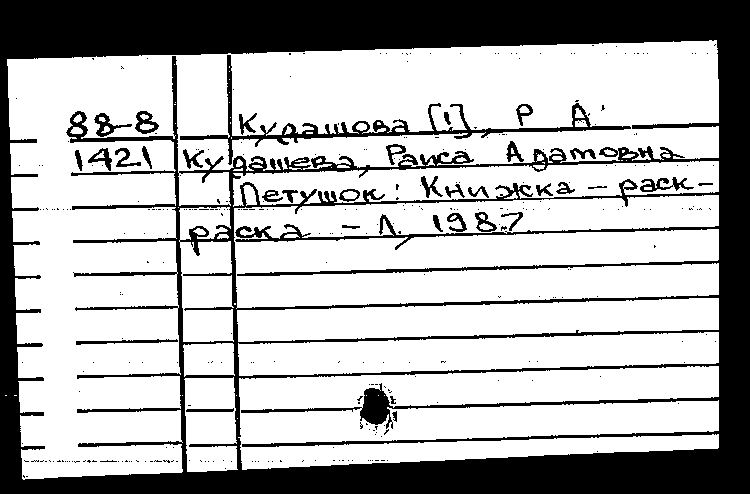 88-8 Кудашова [!], Р А.
1421 Кудашева, Раиса Адамовна
Петушок: Книжка - раск-
раска - Л, 1987